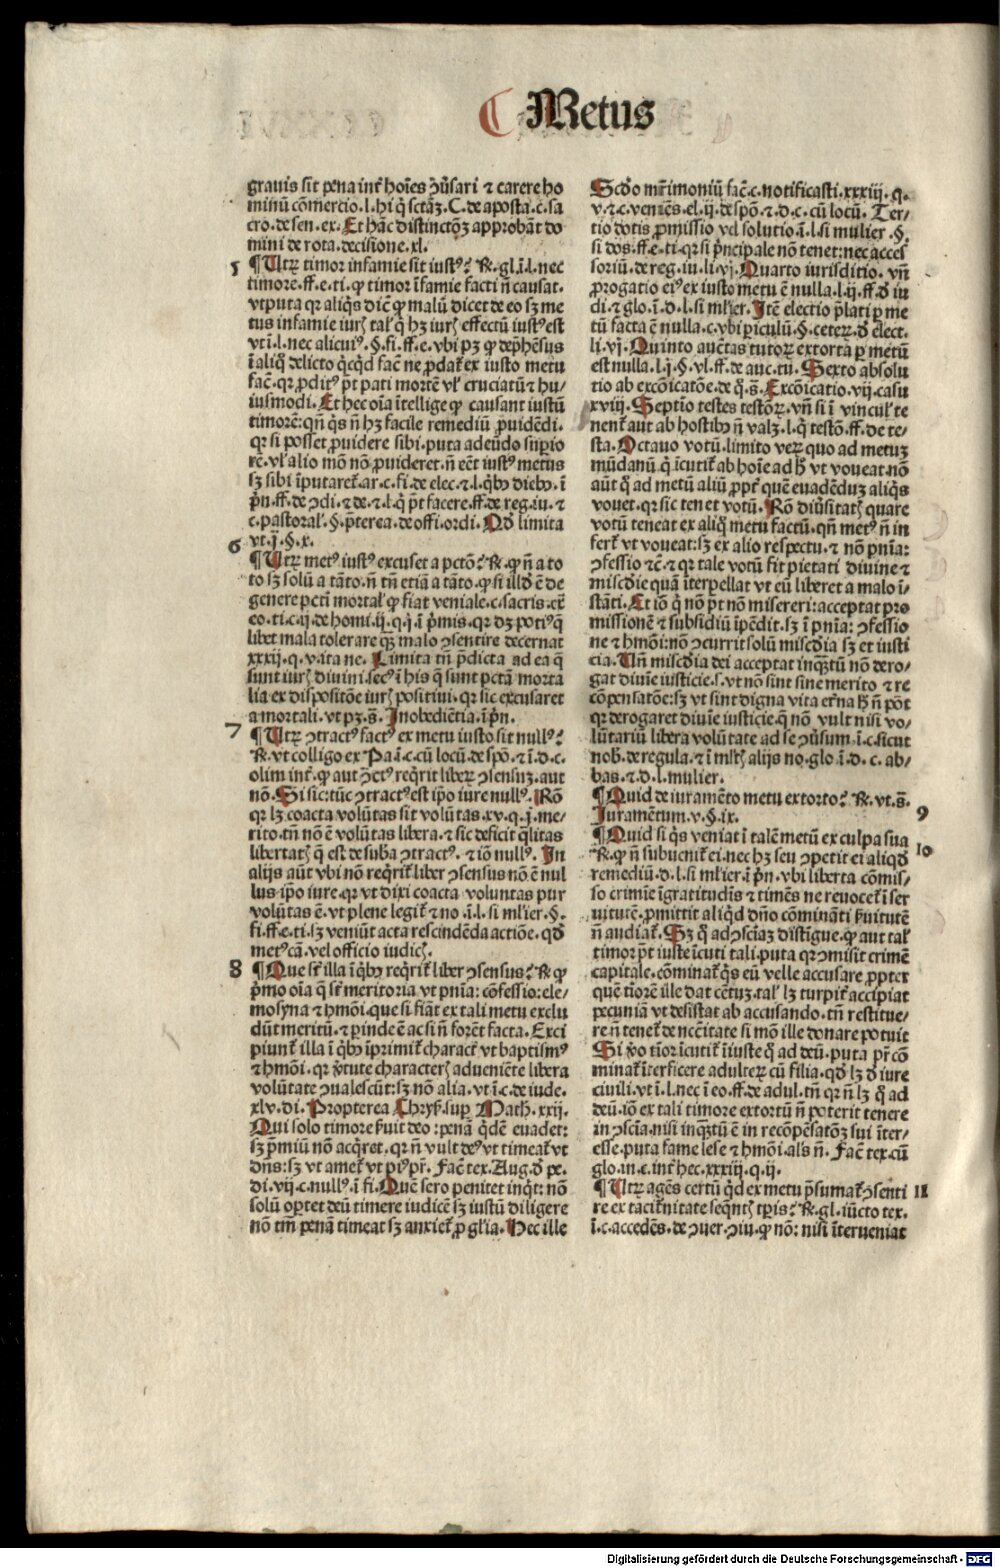 Metus
grauis sit pena int̄ hoīes ꝯu̓sari ⁊ carere ho
minū cōmercio.l.hi q̄ sctāꝫ.C.de aposta.c.sa
cro.de sen.ex.Et hāc distinctōꝫ approbāt do
mini de rota.decisione.xl.
5 ¶Utꝝ timor infamie sit iustꝰ? ℞.gl.ī.l.nec
timore.ff.e.ti.ꝙ timor īfamie facti n̄ causat.
vtputa qr aliq̄s dicē ꝙ malū dicet de eo sꝫ me
tus infamie iurꝭ tal' q̄ hꝫ iurꝭ effectū iustꝰ est
vt ī.l.nec alicuiꝰ.§.fi.ff.e.vbi pꝫ ꝙ dep̄hēsus
ī aliq̄ delicto q̄cq̄d facē ne ꝓdat̄ ex iusto metu
facē.qr ꝓditꝰ pt̄ pati mortē vl' cruciatū ⁊ hu/
iusmodi.Et hec oīa ītellige ꝙ causant iustū
timorē:qn̄ q̄s n̄ hꝫ facile remediū ꝓuidēdi.
qr si posset ꝓuidere sibi.puta adeūdo sup̄io
rē.vl' alio mō nō ꝓuideret.n̄ eēt iustꝰ metus
sꝫ sibi īputaret̄.ar.c.fi.de elec.⁊.l.q̄bꝫ diebꝫ.ī
p̄n.ff.de ꝯdi.⁊ de.⁊.l.q̄ pt̄ facere.ff.de reg.iu.⁊
c.pastoral'.§.p̄terea.de offi.ordi.Qd̄ limita
vt.j.§.x.
6 ¶Utꝝ metꝰ iustꝰ excuset a pctō? ℞.ꝙ n̄ a to
to sꝫ solū a tāto.n̄ tn̄ etiā a tāto.ꝙ si illd̄ ē de
genere pcti mortal' ꝙ fiat veniale.c.sacris.ex̄
eo.ti.c.ij.de homi.ij.q.j.ī p̄mis.qr dꝫ potiꝰ q̄
libet mala tolerare qꝫ malo ꝯsentire decernat
xxxij.q.v.ita ne.Limita tn̄ p̄dicta ad ea q̄
sunt iurꝭ diuini.secꝰ ī his q̄ sunt pctā morta
lia ex dispositōe iurꝭ positiui.qr sic excusaret
a mortali.vt pꝫ.s̄.Inobediētia.ī p̄n.
7 ¶Utꝝ ꝯtractꝰ factꝰ ex metu iusto sit nullꝰ?
℞.vt colligo ex Pa ī.c.cū locū.de spō.⁊ ī.d.c.
olim int̄.ꝙ aut ꝯctꝰ req̄rit liberꝝ ꝯsensuꝫ.aut
nō.Si sic:tūc ꝯtractꝰ est ip̄o iure nullꝰ.Rō
qr lꝫ coacta volūtas sit volūtas.xv.q.j.me/
rito.tn̄ nō ē volūtas libera.⁊ sic deficit q̄litas
libertatꝭ q̄ est de suba ꝯtractꝰ.⁊ iō nullꝰ.In
alijs aūt vbi nō req̄rit̄ liber ꝯsensus nō ē nul
lus ip̄o iure.qr vt dixi coacta voluntas pur
volūtas ē.vt plene legit̄ ⁊ no.ī.l.si ml'ier.§.
fi.ff.e.ti.sꝫ veniūt acta rescindēda actiōe.qd̄
metꝰcā.vel officio iudicꝭ.
8 ¶Que st̄ illa ī q̄bꝫ req̄rit̄ liber ꝯsensus? ℞ ꝙ
p̄mo oīa q̄ st̄ meritoria vt pn̄ia: cōfessio:ele/
mosyna ⁊ hmōi.que si fiāt ex tali metu exclu
dūt meritū.⁊ ꝑinde ē ac si n̄ forēt facta.Exci
piunt̄ illa ī q̄bꝫ īprimit̄ charact̄ vt baptismꝰ
⁊ hmōi.qr v̓tute characterꝭ adueniēte libera
volūtate ꝯualescūt:sꝫ nō alia.vt ī.c.de iude.
xlv.di.Propterea Chrys̄.suꝑ Math.xxij.
Qui solo timore s̓uit deo:penā q̄dē euadet:
sꝫ p̄miū nō acq̄ret.qr n̄ vult deꝰ vt timeat̄ vt
dn̄s:sꝫ vt amet̄ vt piꝰ pr̄.Facē tex.Aug.d̓ pe.
di.vij.c.nullꝰ.ī fi.Quē sero penitet inq̄t:nō
solū oꝑtet deū timere iudicē sꝫ iustū diligere
nō tm̄ penā timeat sꝫ anxiet̄ ꝓ gl'ia.Hec ille
Scdo mr̄imoniū facē.c.notificasti.xxxiij.q.
v.⁊.c.veniēs.el.ij.de spō.⁊.d.c.cū locū.Ter/
tio dotis ꝓmissio vel solutio ī.l.si mulier.§.
si dos.ff.e.ti.qr si p̄ncipale nō tenet:nec acces
soriū.de reg.iu.li.vj.Quarto iurisditio.vn̄
ꝓrogatio eiꝰ ex iusto metu ē nulla.l.ij.ff.d̓ iu
di.⁊ glo.ī.d.l.si ml'ier.Itē electio p̄lati ꝑ me
tū facta ē nulla.c.vbi ꝑiculū.§.ceterꝝ.d̓ elect.
li.vj.Quinto auc̄tas tutorꝝ extorta ꝑ metū
est nulla.l.j.§.vl.ff.de auc.tu.Sexto absolu
tio ab excōicatōe.de q̄.s̄.Excōicatio.vij.casu
xviij.Septīo testes testōꝝ.vn̄ si ī vincul' te
nent̄ aut ab hostibꝫ n̄ valꝫ.l.q̄ testō.ff.de te/
sta.Octauo votū.limito verꝝ quo ad metuꝫ
mūdanū.q̄ īcutit̄ ab hoīe ad h̓ vt voueat.nō
aūt q̄ ad metū aliū ꝓpt̄ quē euadēduꝫ aliq̄s
vouet.qr sic tenet votū.Rō diu̓sitatꝭ quare
votū teneat ex aliq̄ metu factū.qn̄ metꝰ n̄ in
fert̄ vt voueat:sꝫ ex alio respectu.⁊ nō pn̄ia:
ꝯfessio ⁊c̄.⁊ qr tale votū fit pietati diuine ⁊
miscd̄ie quā īterpellat vt eū liberet a malo ī/
stāti.Et iō q̄ nō pt̄ nō misereri:acceptat pro
missionē ⁊ subsidiū īpēdit.sꝫ ī pn̄ia: ꝯfessio
ne ⁊ hmōi:nō ꝯcurrit solū miscd̄ia sꝫ et iusti
cia.Un̄ miscd̄ia dei acceptat inqꝫtū nō dero/
gat diuīe iusticie.s.vt nō sint sine merito ⁊ re
cōpensatōe:sꝫ vt sint digna vita et̄na h̓ n̄ pōt
qr derogaret diuīe iusticie.q̄ nō vult nisi vo/
lūtariū libera volūtate ad se ꝯu̓sum.ī.c.sicut
nob̓.de regula.⁊ ī ml'tꝭ alijs no.glo ī.d.c.ab/
bas.⁊.d.l.mulier.
9 ¶Quid de iuramēto metu extorto? ℞.vt.s̄.
Iuramētum.v.§.ix.
10 ¶Quid si q̄s veniat ī talē metū ex culpa sua
℞.ꝙ n̄ subuenit̄ ei.nec hꝫ seu ꝯpetit ei aliqd̄
remediū.d.l.si ml'ier.ī p̄n.vbi liberta cōmis/
so crimīe īgratitudīs ⁊ timēs ne reuocet̄ ī ser
uitutē.ꝓmittit aliq̄d dn̄o cōmināti s̓uitutē
n̄ audiat̄.Sꝫ q̄ ad ꝯsciaꝫ distīgue.ꝙ aut tal'
timor pt̄ iuste īcuti tali.puta qr ꝯmisit crimē
capitale.cōminat̄ q̄s eū velle accusare ꝓpter
quē tīorē ille dat cētuꝫ.tal' lꝫ turpit̄ accipiat
pecuniā vt desistat ab accusando.tn̄ restitue/
re n̄ tenet̄ de nccītate si mō ille donare potuit
Si v̓o tīor īcutit̄ īiuste q̄ ad deū.puta pr̄ cō
minat̄ īterficere adulterꝝ cū filia.qd̄ lꝫ d̓ iure
ciuili.vt ī.l.nec ī eo.ff.de adul.tn̄ qr n̄ lꝫ q̄ ad
deū.iō ex tali timore extortū n̄ poterit tenere
in ꝯscīa.nisi inqꝫtū ē in recōpēsatōꝫ sui īter/
esse.puta fame lese ⁊ hmōi.al's n̄.Facē tex.cū
glo.in.c.int̄ hec.xxxiij.q.ij.
11 ¶Utꝝ agēs certū q̄d ex metu p̄sumat̄ ꝯsenti
re ex tacit̄nitate seq̄ntꝭ tꝑis? ℞.gl.iūcto tex.
ī.c.accedēs.de ꝯuer.ꝯiu.ꝙ nō: nisi īterueniat
Digitalisierung gefördert durch die Deutsche Forschungsgemeinschaft - DFG